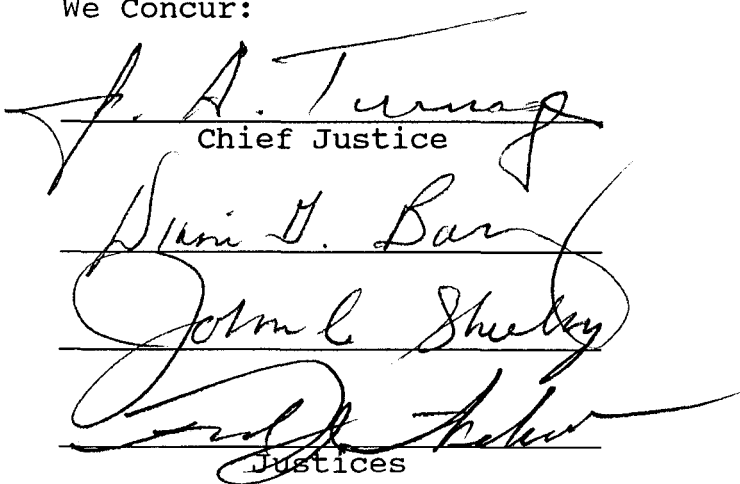 We Concur:
J. A. Turnage
Chief Justice
Diane G. Barz
John C. Sheehy
Justices